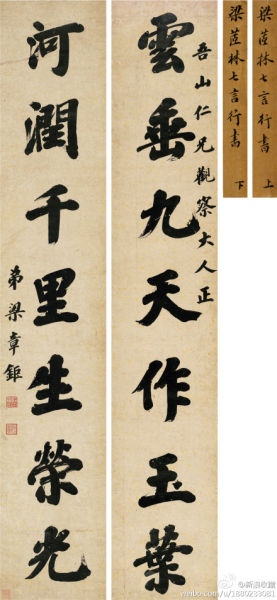 梁茝林七言行書 上
梁茝林七言行書 下
吾山仁兄觀察大人正
雲垂九天作玉葉
河潤千里生榮光
弟梁章鉅
新浪收藏
weibo.com/u/1880233081